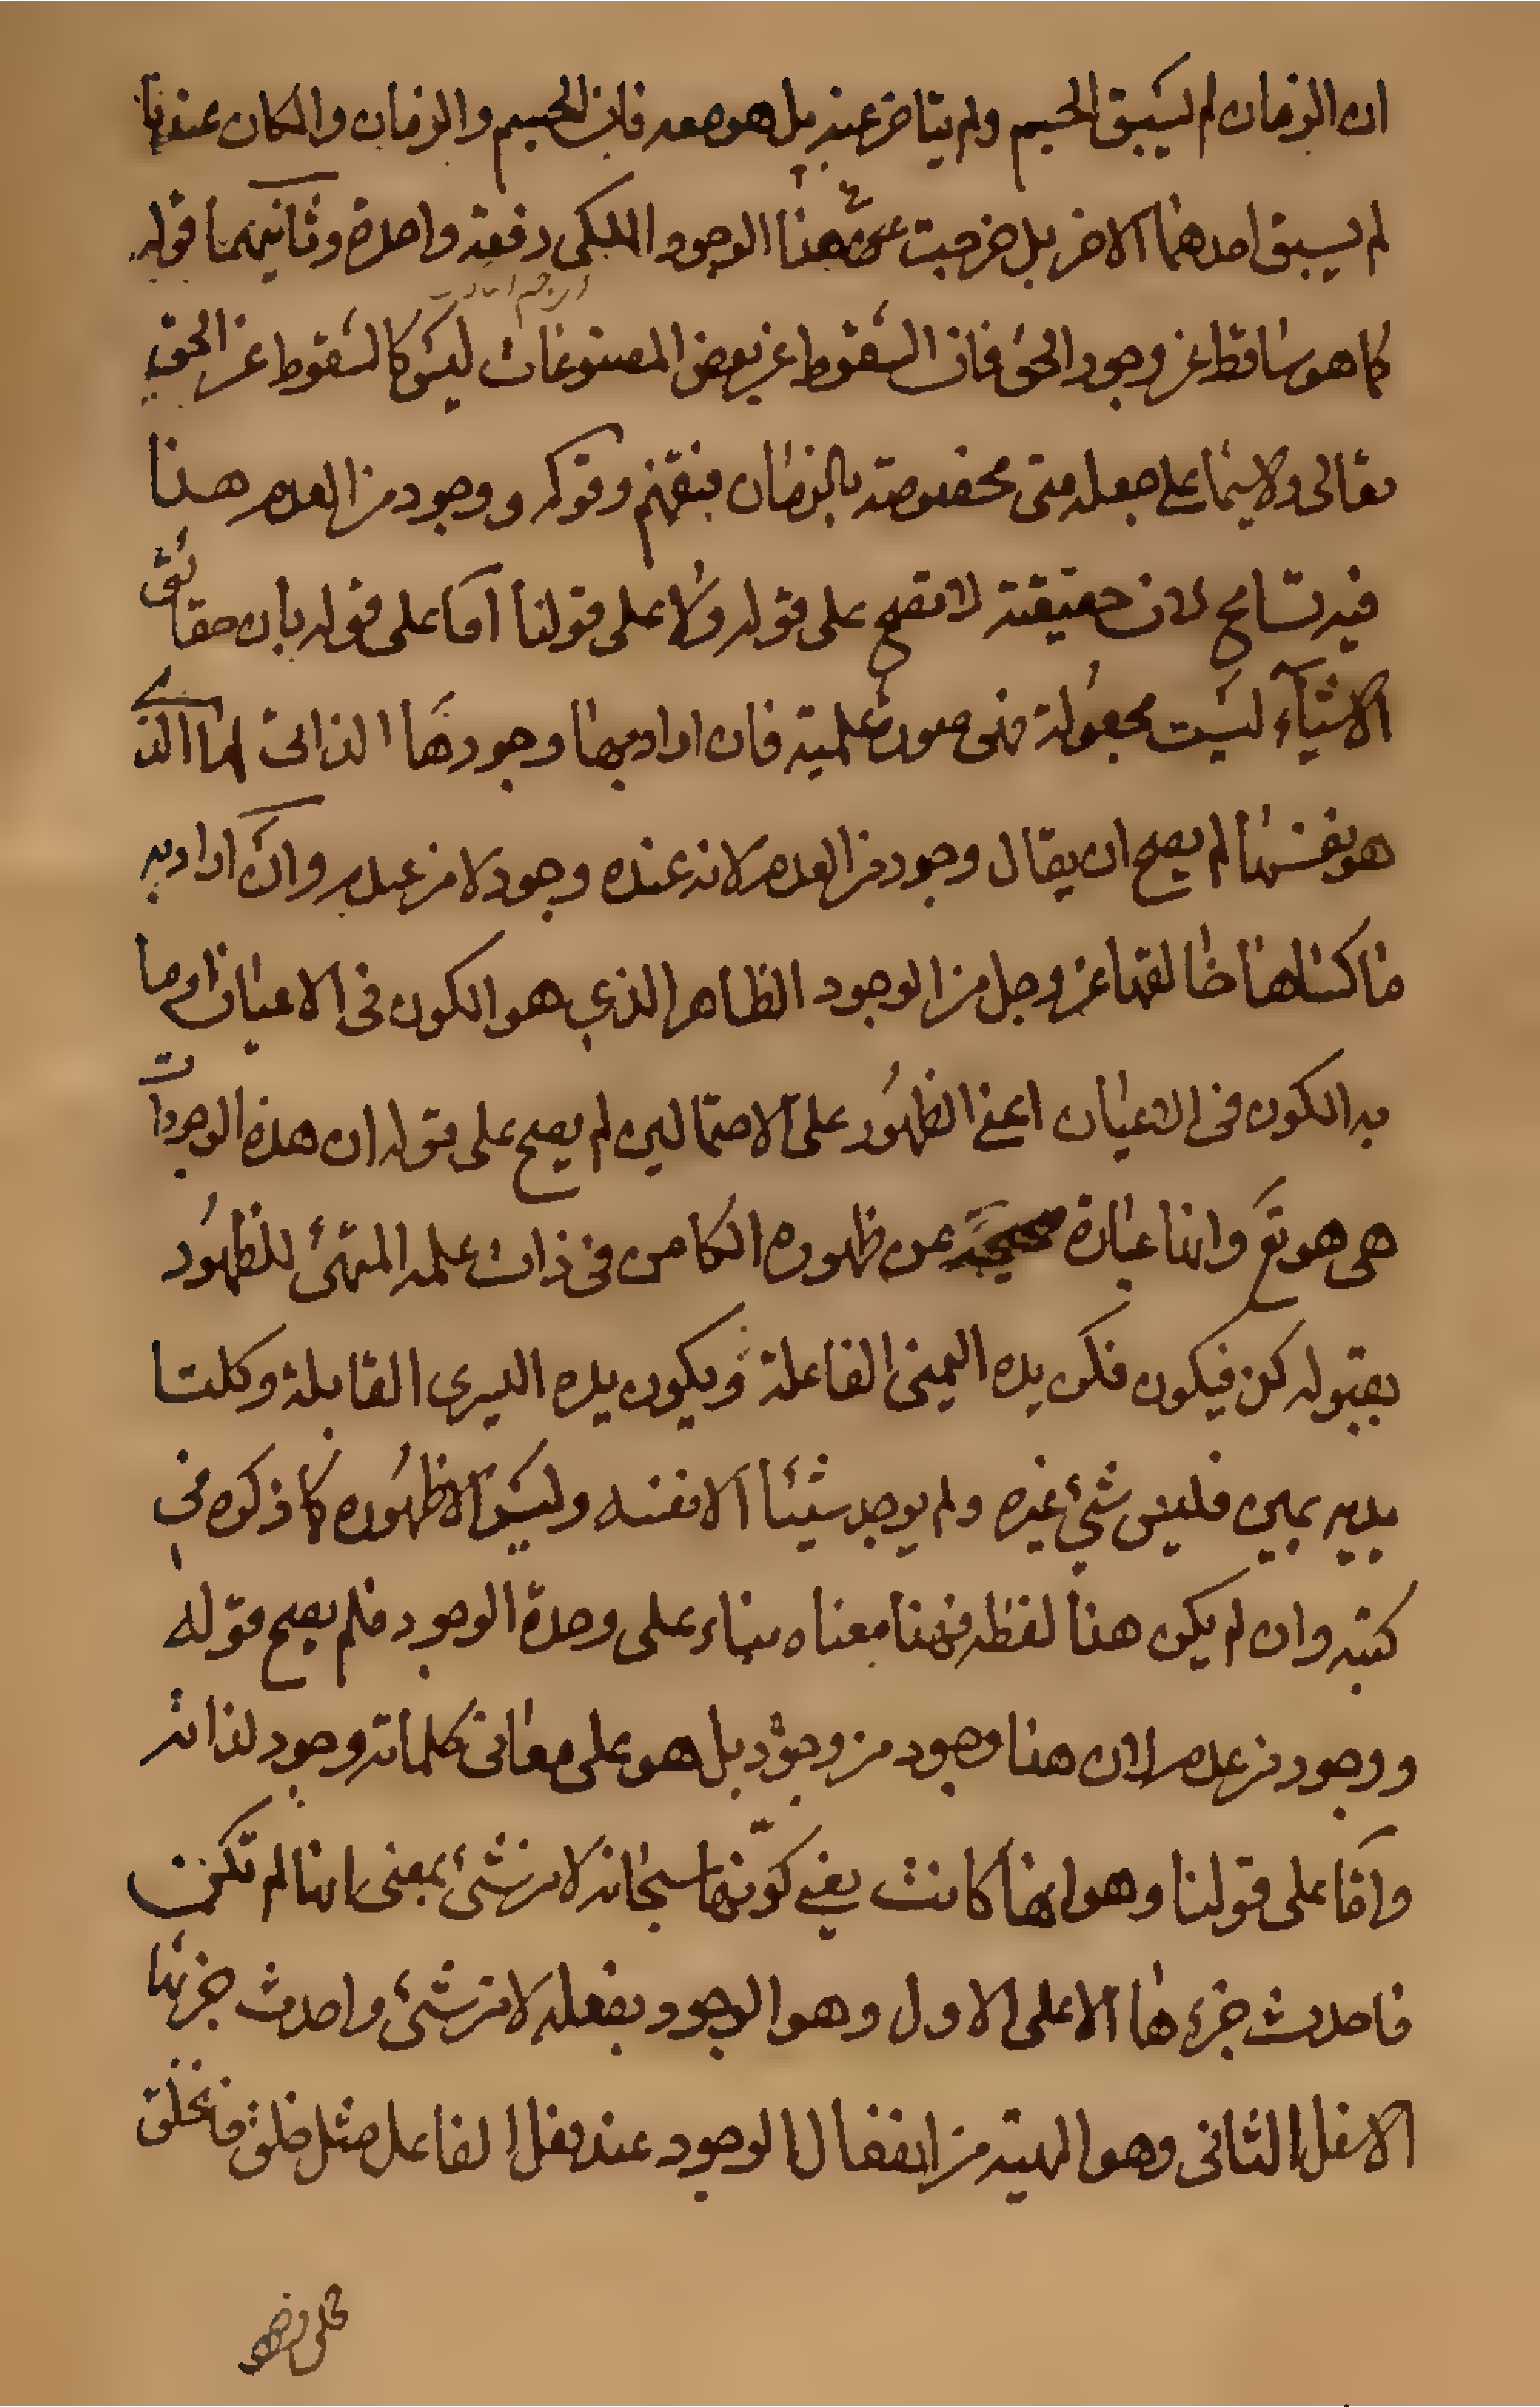 ان الزمان لم يسبق الجسم ولم يتاخر عنه بل هو معه فان الجسم والزمان والمكان عندنا
لم يسبق احدهما الاخر بل خرجت هذا الوجود الملكي دفعة واحدة وثانيهما قوله
كما هو ساقط عن وجود الحق فان السقوط عن بعض المصنوعات ليس كالسقوط عن الحق
تعالى ولاسيما على جعله متى مخصوصة بالزمان فتفهم وقوله ووجود من العدم هذا
فيه تسامح لان حقيقته لا تصح على قوله ولا على قولنا اما على قوله بان حقائق
الاشياء ليست مجعولة فهى صور علمية فان اراد بها وجودها الذاتى لها الذي
هو نفسها لم يصح ان يقال وجود من العدم لانه عنده وجود لا من عدم وان اراد به
ما كساها خالقها عز وجل من الوجود الظاهر الذي هو الكون فى الاعيان او ما
به الكون فى الاعيان اعنى الظهور على الاحتمالين لم يصح على قوله ان هذه الوجودات
هى هو تع وانها عبارة صحيحة عن ظهوره الكامن فى ذات علمه المتهئ للظهور
بقبوله كن فيكون فكن يده اليمنى الفاعلة ويكون يده اليسرى القابلة وكلتا
يديه يمين فليس شئ غيره ولم يوجد شيئا الا نفسه وليس الا ظهوره كما ذكره فى
كتبه وان لم يكن هذا لفظه فهذا معناه بناء على وحدة الوجود فلم يصح قوله
ووجود من عدم لان هذا وجود من وجود بل هو على معانى كلماته وجود لذاته
واما على قولنا وهو انها كانت يعنى كونها سبحانه لا من شئ بمعنى انها لم تكن
فاحدث جزءها الاعلى الاول وهو الوجود بفعله لا من شئ واحدث جزئها
الاسفل الثانى وهو المهية من انفعال الوجود عند فعل الفاعل مثل خلق فانخلق